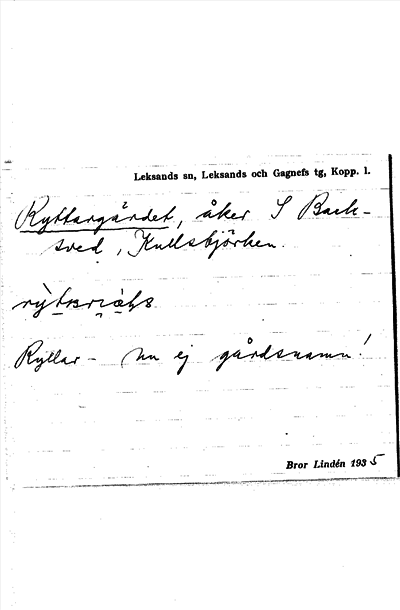 Leksands sn, Leksands och Gagnefs tg, Kopp. l.
Ryttargärdet, åker S Back-
sved, Kullsbjörken.
Ryllar - nu ej gårdsnamn!
Bror Lindén 1935